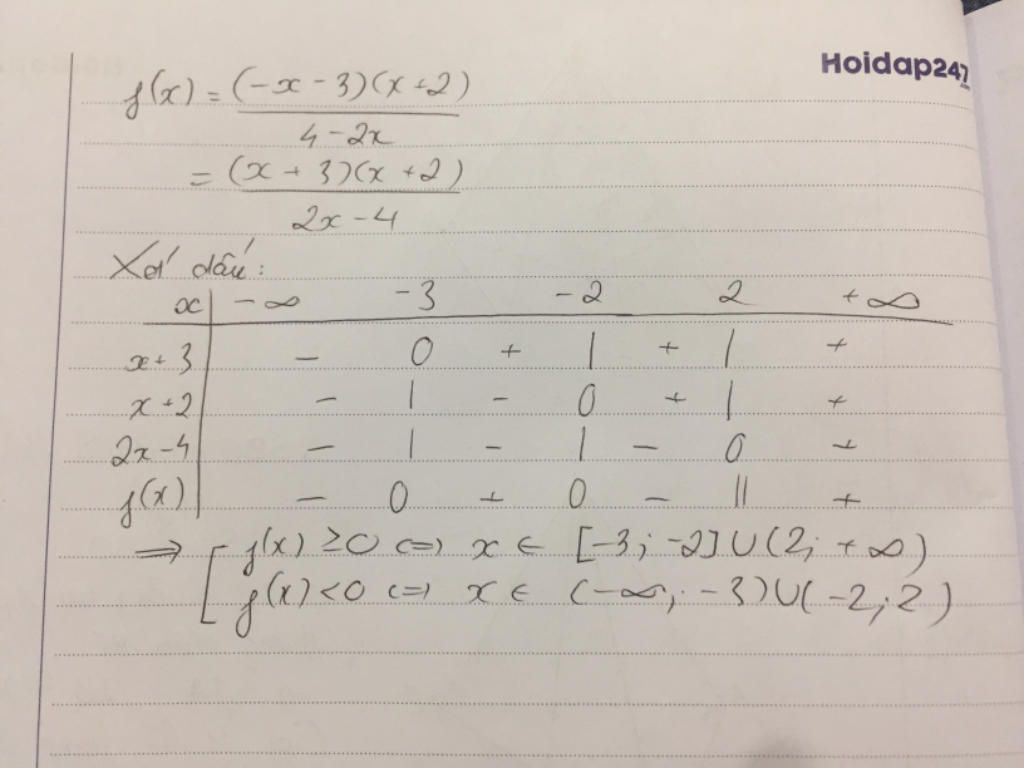 Hoidap247
f(x) = (-x - 3)(x + 2)
4 - 2x
= (x + 3)(x + 2)
2x - 4
Xét dấu:
x | -∞ -3 -2 2 +∞
x + 3 | - 0 + | + | +
x + 2 | - | - 0 + | +
2x - 4 | - | - | - 0 +
f(x) | - 0 + 0 - || +
⇒ [ f(x) ≥ 0 ⇔ x ∈ [-3; -2] ∪ (2; +∞)
f(x) < 0 ⇔ x ∈ (-∞; -3) ∪ (-2; 2)